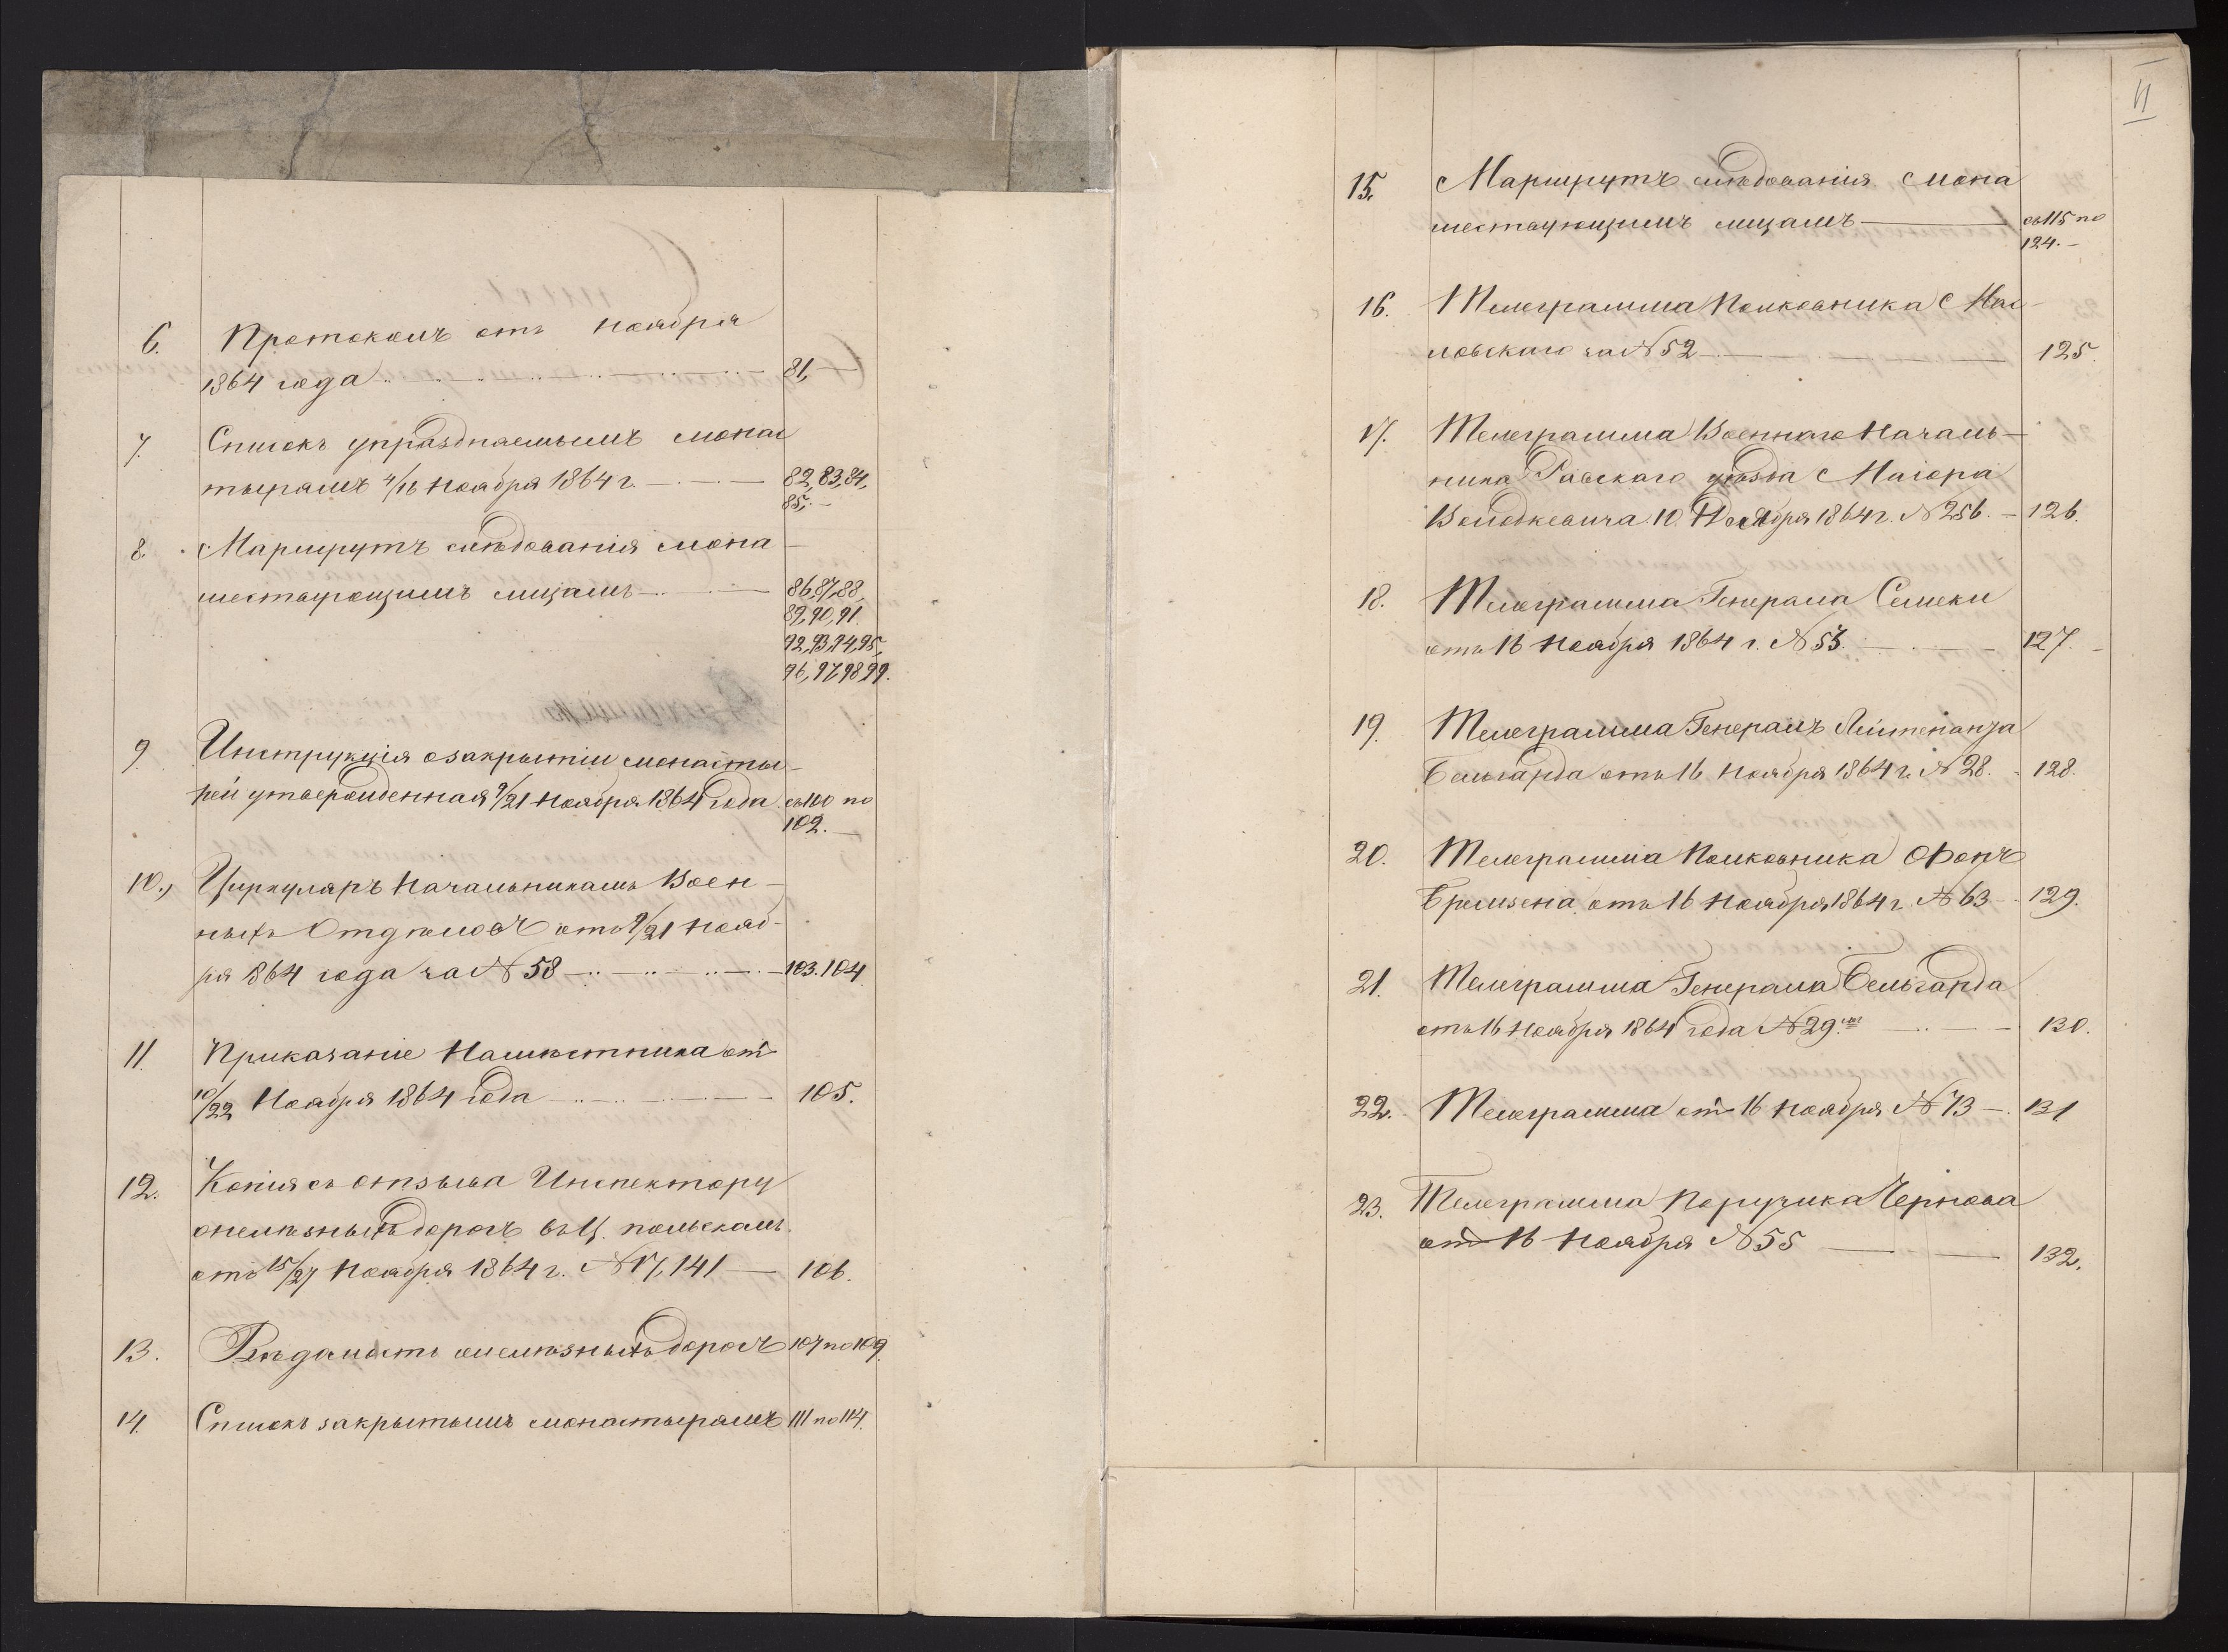 6. Протоколъ отъ Ноября
1864 года 81,
7. Списокъ упраздняемымъ монас
тырямъ 4/16 Ноября 1864 г. 82, 83, 84,
85,
8. Маршрутъ слѣдованія мона
шествующимъ лицамъ 86, 87, 88,
89, 90, 91.
92, 93, 94, 95,
96, 97, 98, 99.
9. Инструкція о закрытіи монасты-
рей утвержденная 9/21 Ноября 1864 года съ 100 по
102.
10., Циркуляръ Начальникамъ Воен-
ныхъ Отдѣловъ отъ 9/21 Нояб-
ря 1864 года за N 58 103. 104.
11. Приказаніе Намѣстника отъ
10/22 Ноября 1864 года 105.
12. Копія съ отзыва Инспектору
желѣзныхъ дорогъ въ Ц. польскомъ
отъ 15/27 Ноября 1864 г. N 17,141 106.
13. Вѣдомость желѣзныхъ дорогъ 107 по 109.
14. Списокъ закрытымъ монастырямъ 111 по 114.
II
15. Маршрутъ слѣдованія мона
шествующимъ лицамъ съ 115 по
124.
16. Телеграмма Полковника Мас-
ловскаго за N 52 125.
17. Телеграмма Военнаго Началь-
ника Равскаго уѣзда Маіора
Володкевича 10 Ноября 1864 г. N 256. 126.
18. Телеграмма Генерала Семеки
отъ 16 Ноября 1864 г. N 53. 127.
19. Телеграмма Генералъ Лейтенанта
Бельгарда отъ 16 Ноября 1864 г. N 28. 128.
20. Телеграмма Полковника Фонъ
Бремзена отъ 16 Ноября 1864 г. N 63 129.
21. Телеграмма Генерала Бельгарда
отъ 16 Ноября 1864 года N 29. 130.
22. Телеграмма отъ 16 Ноября N 73 131
23. Телеграмма Поручика Чернова
отъ 16 Ноября N 55 132.